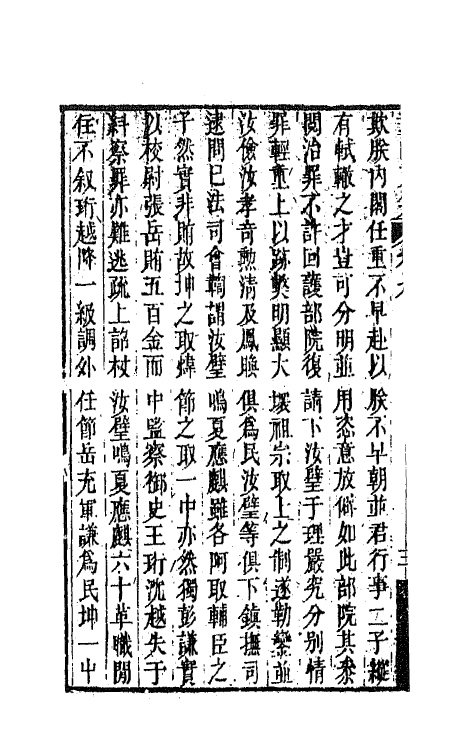 欺朕內閣任重不早赴以朕不早朝並君行事二子縱
有軾轍之才豈可分明並用恣意放僻如此部院其叅
閱治罪不許回護部院復請下汝璧于理嚴究分別情
罪輕重上以跡弊明顯大壞祖宗取上之制遂勒鑾並
汝儉汝孝奇勲清及鳳㬇俱為民汝璧等俱下鎮撫司
逮問已法司會鞫謂汝璧鳴夏應麒雖各阿取輔臣之
子然實非賄故坤之取煒節之取一中亦然獨彭謙實
以校尉張岳賄五百金而中監察御史王珩沈越失于
糾察罪亦難逃疏上詔杖汝璧鳴夏應麒六十革職閒
住不叙珩越降一級調外任節岳充軍謙為民坤一中